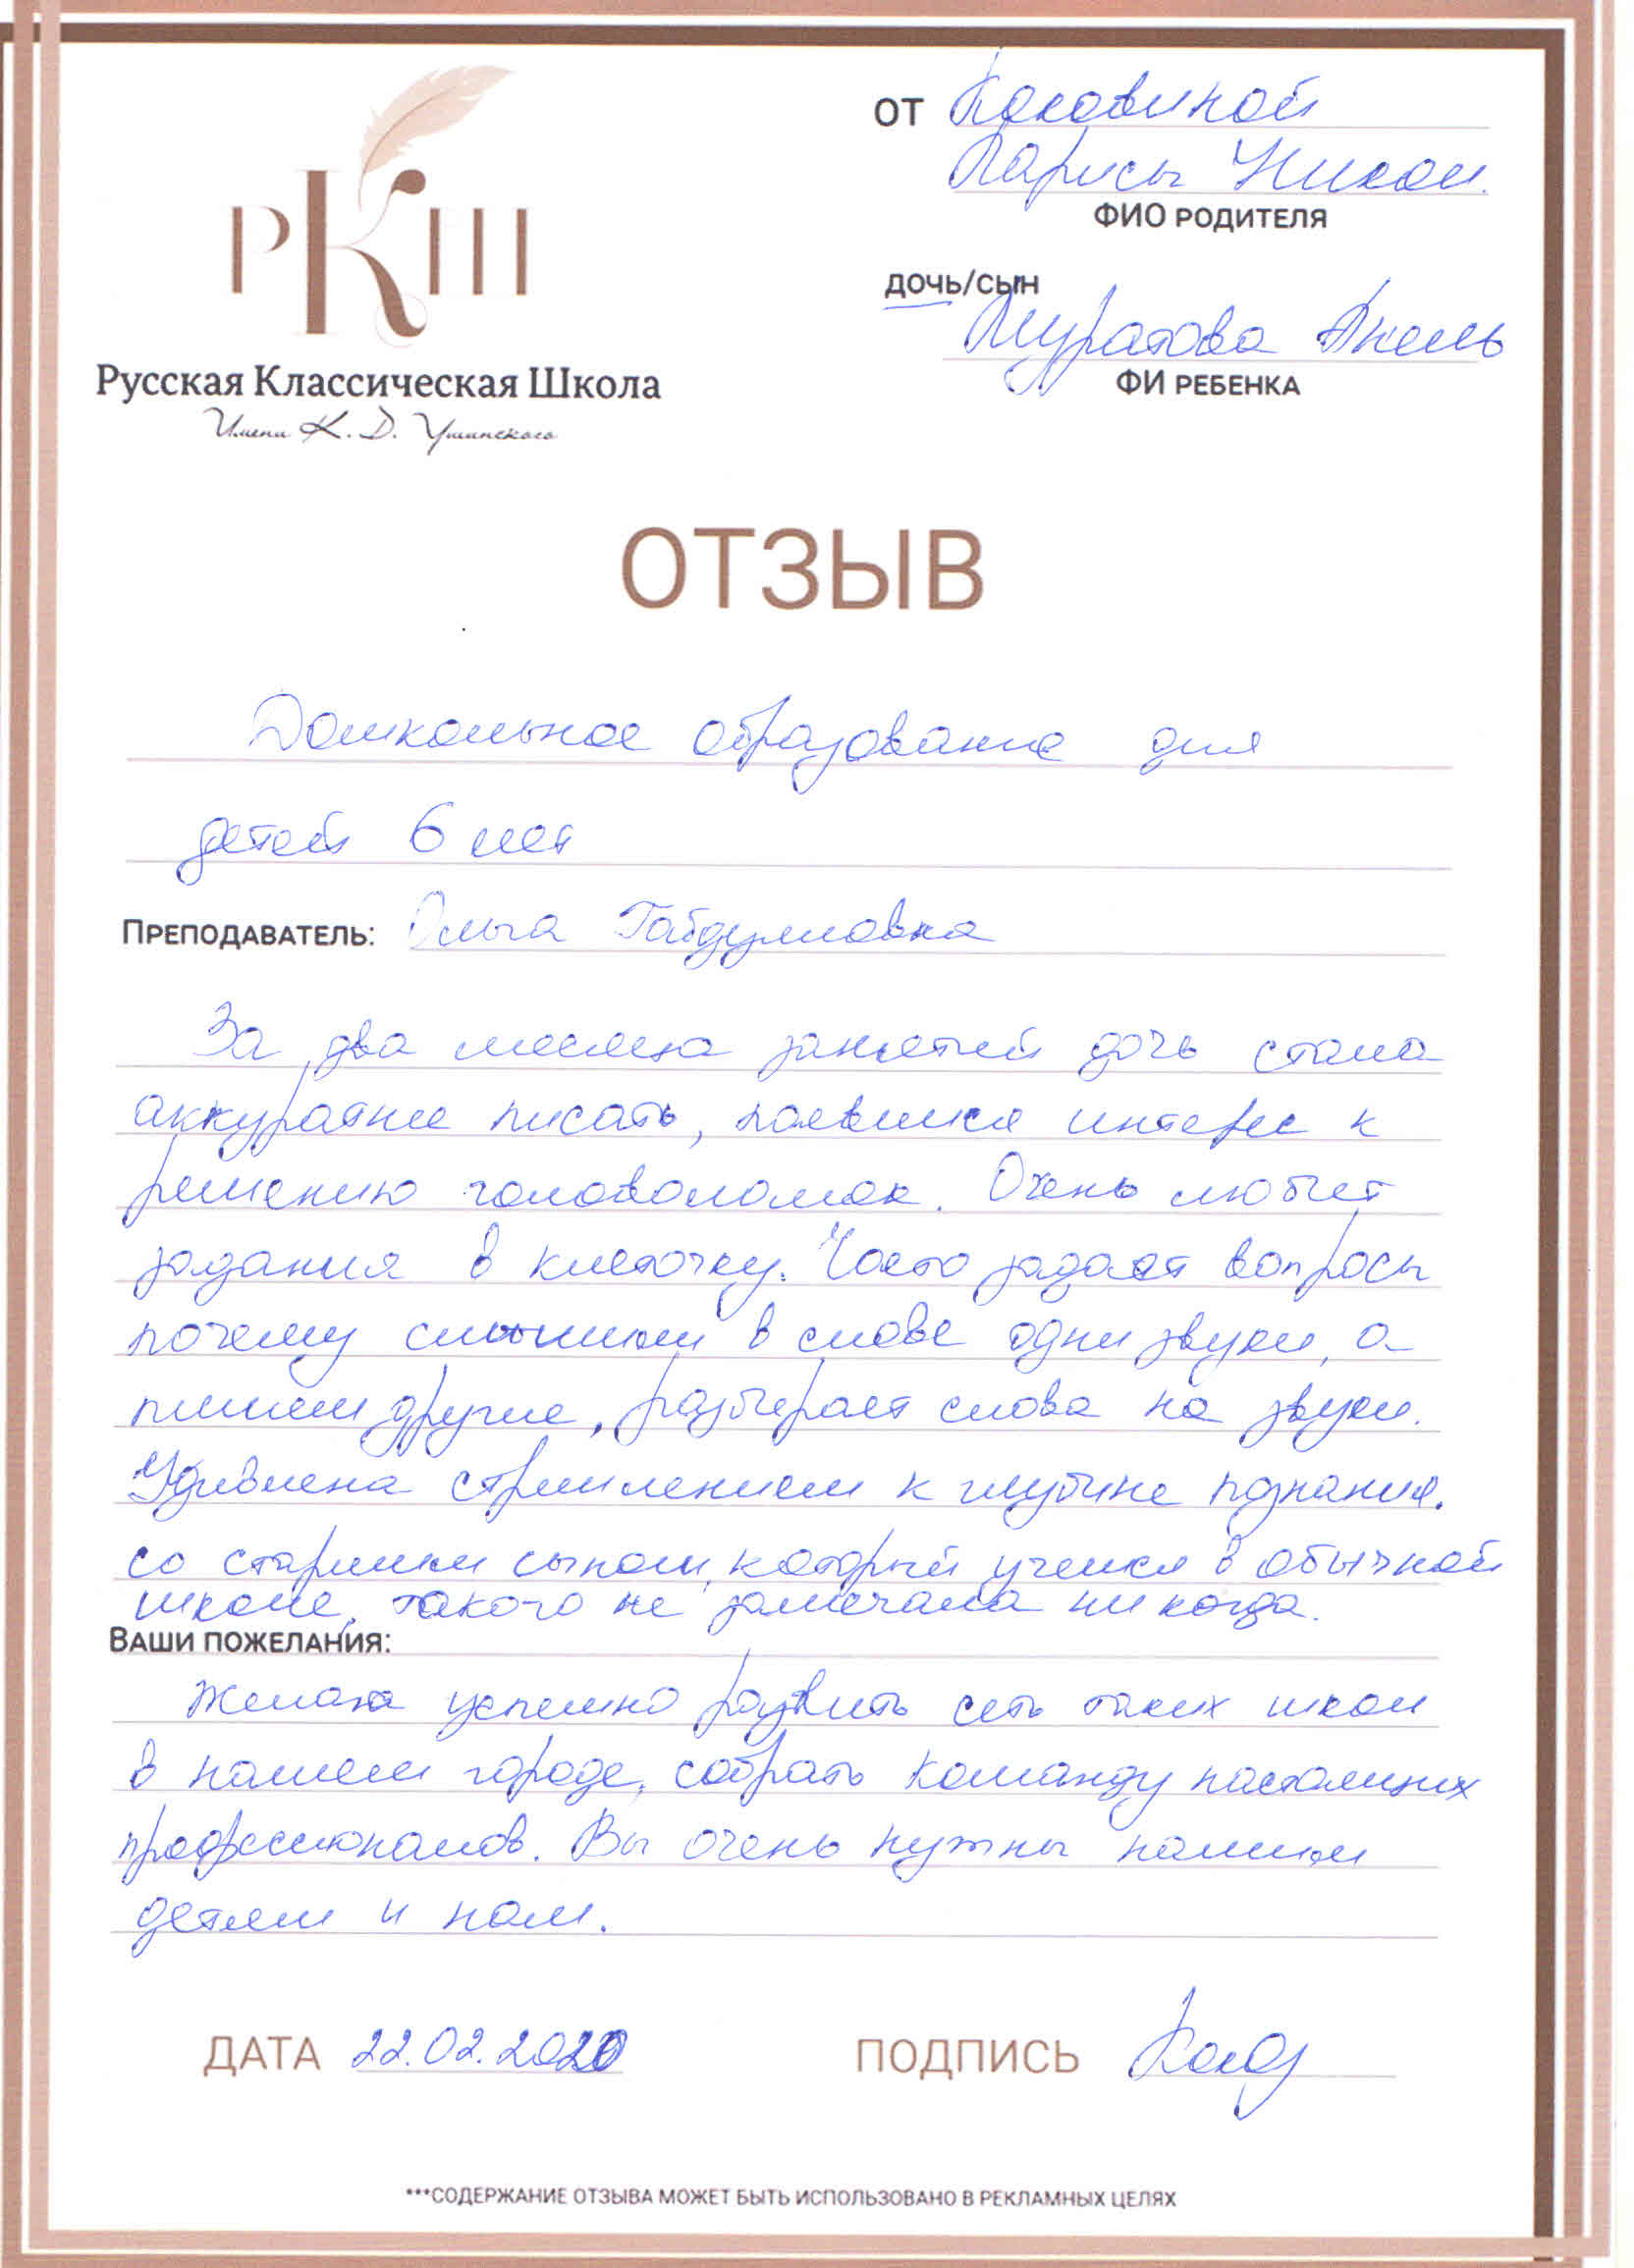 РКШ
Русская Классическая Школа
Имени К. Д. Ушинского
ОТ
Ларисы Никол.
ФИО РОДИТЕЛЯ
ДОЧЬ/СЫН
Муратова
ФИ РЕБЕНКА
ОТЗЫВ
Дошкольное образование для
детей 6 лет
ПРЕПОДАВАТЕЛЬ: Ольга Габдулловна
За два месяца занятий дочь стала
аккуратнее писать, появился интерес к
решению головоломок. Очень любит
задания в клеточку. Часто задает вопросы
почему слышим в слове одни звуки, а
пишем другие, разбирает слова на звуки.
Удивлена стремлением к глубине познания.
со старшим сыном, который учился в обычной
школе, такого не замечала никогда.
ВАШИ ПОЖЕЛАНИЯ:
Желаю успешно развить сеть таких школ
в нашем городе, собрать команду настоящих
профессионалов. Вы очень нужны нашим
детям и нам.
ДАТА 22.02.2020
ПОДПИСЬ
***СОДЕРЖАНИЕ ОТЗЫВА МОЖЕТ БЫТЬ ИСПОЛЬЗОВАНО В РЕКЛАМНЫХ ЦЕЛЯХ